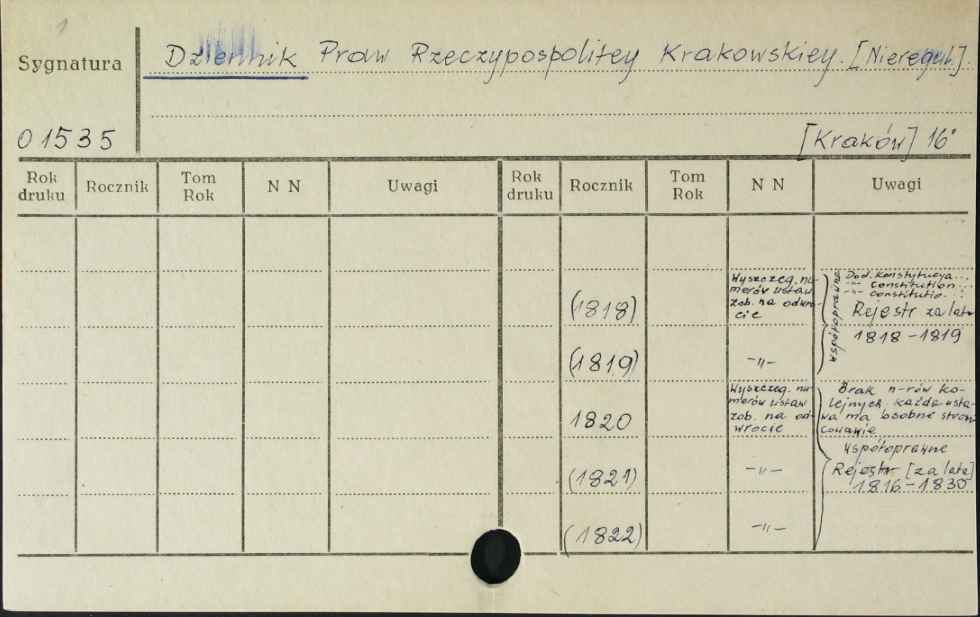 1
Sygnatura
Dziennik Praw Rzeczypospolitey Krakowskiey. [Nieregul.].
01535
[Kraków] 16°
Rok druku
Rocznik
Tom Rok
N N
Uwagi
Rok druku
Rocznik
Tom Rok
N N
Uwagi
(1818)
Wyszczeg. nu-
merów ustaw
zob. na odwro-
cie
współoprawne
Dod. Konstytucya...
-„- constitution...
-„- constitutio...
Rejestr za lata
1818-1819
(1819)
-„-
1820
Wyszczeg. nu-
merów ustaw
zob. na od-
wrocie
Brak n-rów ko-
lejnych, każda usta-
wa ma osobne stron-
cowanie
współoprawne
Rejestr [za lata]
1816-1830
(1821)
-„-
(1822)
-„-